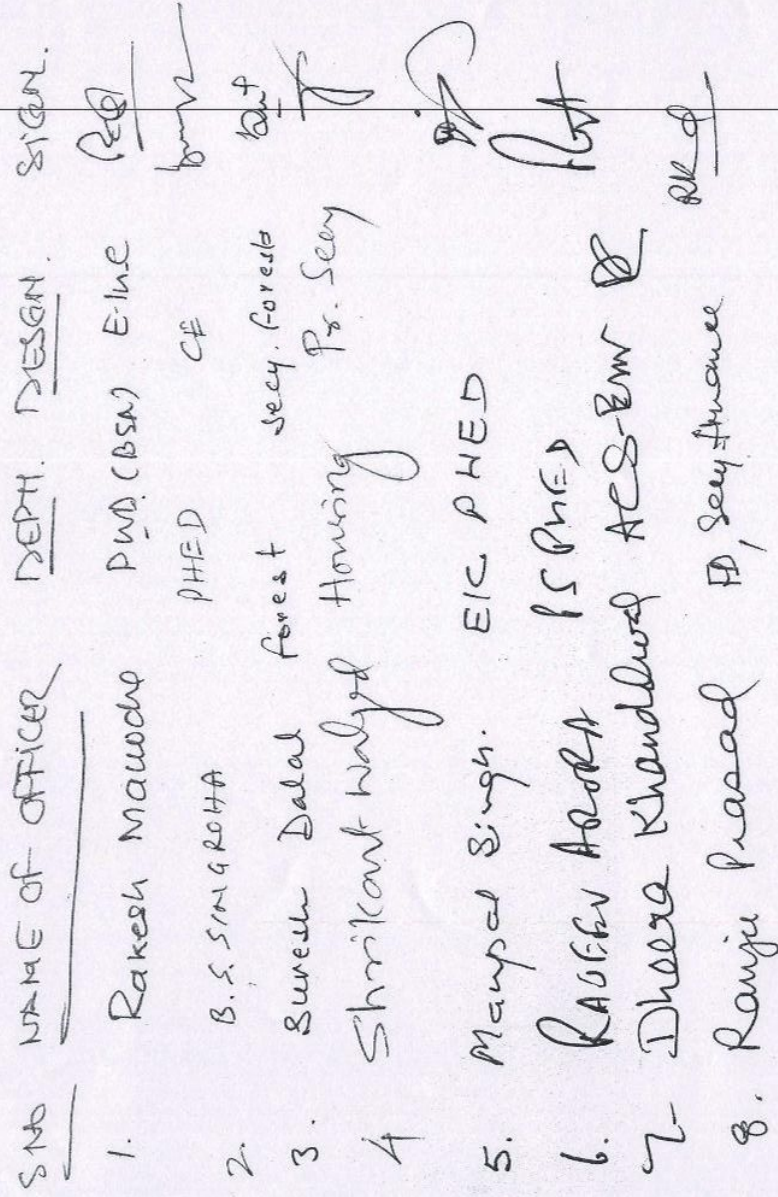 S.No NAME OF OFFICER DEPTT. DESGN. SIGN.
1. Rakesh Manocha PWD (B&R) E.InC
2. B.S. SINGROHA PHED CE
3. Suresh Dalal Forest Secy Forests
4 Shrikant Walgad Housing Pr. Secy
5. Manpal Singh. EIC PHED
6. RAJEEV ARORA PS PHED
7- Dheera Khandelwal ACS-
8. Ranju Prasad FD, Secy finance